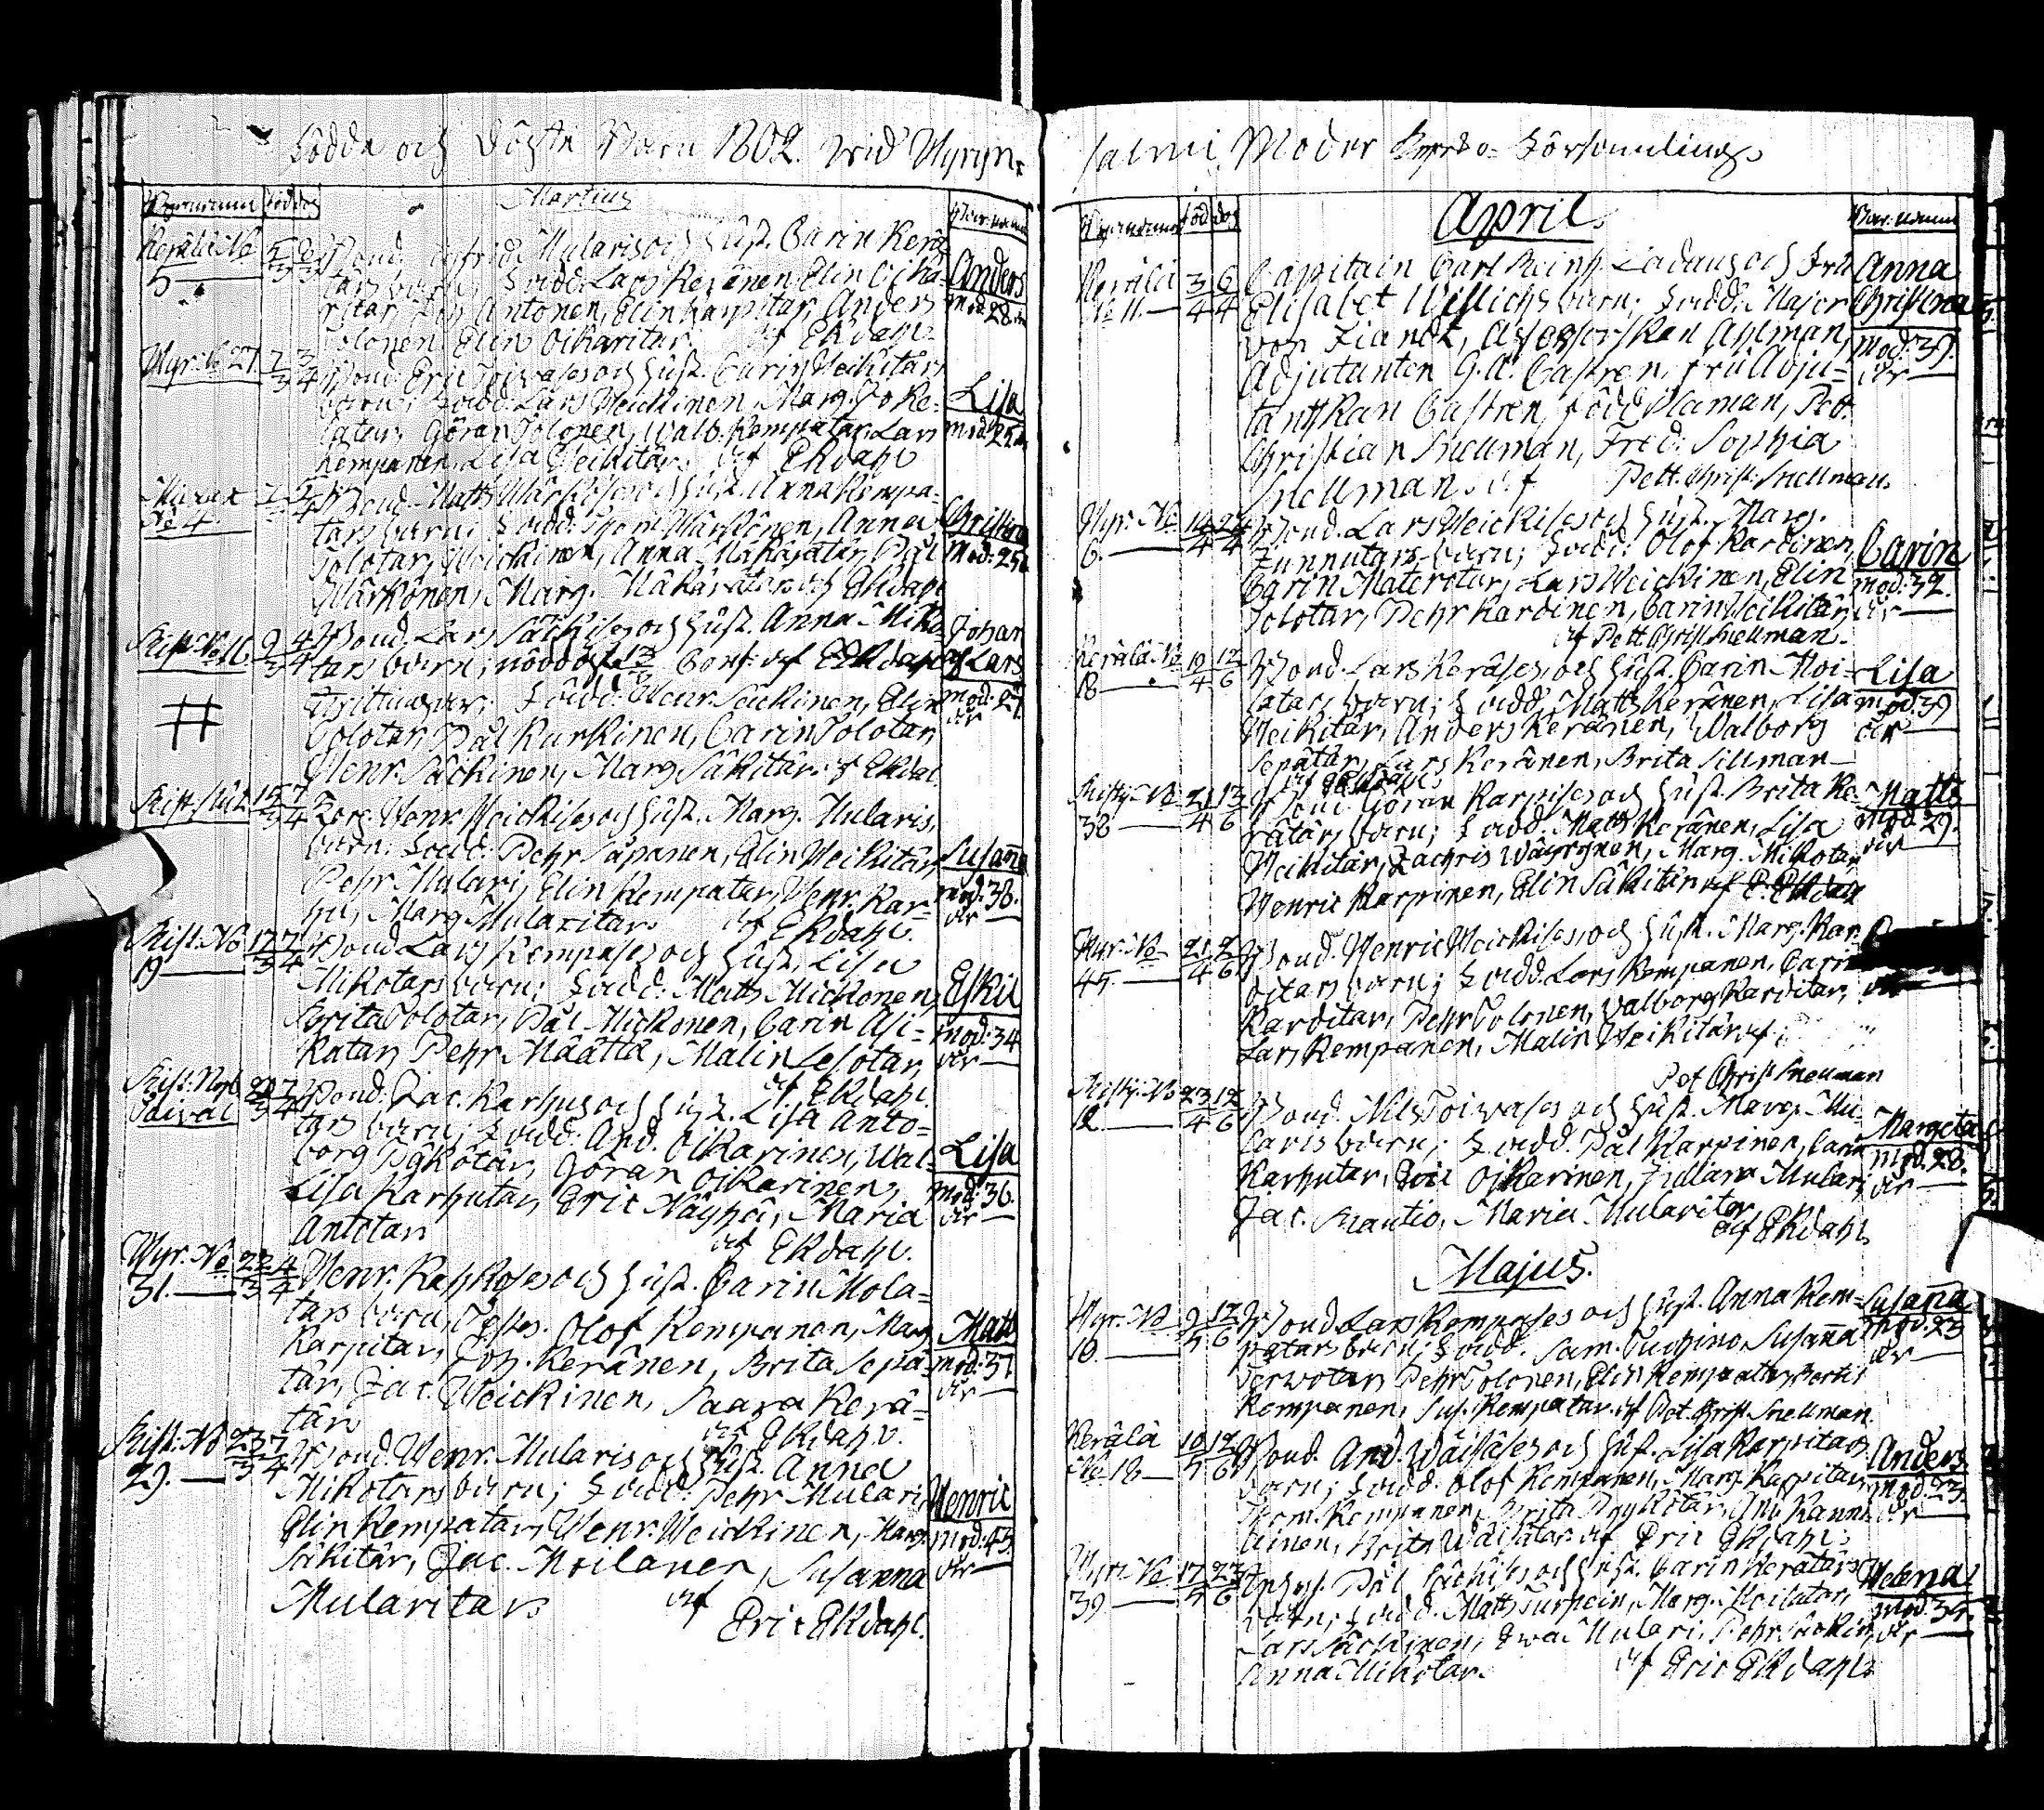 Födde och Döpte Barn 1802. wid Hyryn-
Martius
Barnens namn
född döp
Kerälä No
5
Bond. Sigfrid Mularis och Hust. Carin Kerä-
tärs barn; Fadd: Lars Keränen, Elin Oika-
ritar, Antonen, Elin Karpitar, Anders
Tolonen, Elin Oikaritar. af Ekdahl
Anders
mod. 28
Hyr. No 27.
2/3 3/4
Bond. Eric Toiwases och Hust. Carin Weikitärs
barn; Fadd. Lars Weickinen, Marg. Joke-
latar, Göran Tolonen, Walb. Kempatar, Lars
Kempanen, Lisa Weikitär. af Ekdahl
Lisa
mod. 25
No 4.
Bond. Matts Wärköses och Hust. Anna Kempa-
tars barn; Fadd: Thom. Wärkönen, Anna
Tolotar, Weickinen, Anna Makarätär, Pål
Wärkönen, Marg. Makarätär af Ekdahl
Christina
mod. 25
Rist. No 16
9/3 4/4
Bond. Lars Säckises och Hust. Anna Miko-
tars barn; nöddöpt Conf. af Ekdahl
Fadd: Henr. Säckinen, Elin
Tolotar, Pål Kurkinen, Carin Tolotar,
Henr. Säckinen, Marg. Säkitär. af Ekdal
Johan
Lars
mod. 27.
år
#
15/3 7/4
Torp. Henr. Weickises och Hust. Marg. Mularis,
barn. Fadd: Pehr Säpänen, Elin Weikitär,
Pehr Mulari, Elin Kempatar, Henr. Kar-
hu, Marg. Mularitar. af Ekdahl.
Susaña
mod. 38.
år
Rist. No
19
17/3 7/4
Bond. Lars Kempases och Hust. Lisa
Mikotars barn; Fadd: Matts Mickonen,
Brita Tolotar, Pål Mickonen, Carin Asi-
katar, Pehr Määttä, Malin Lesotar,
af Ekdahl.
Eskil
mod. 34
år
20/3 7/4
Bond. Jac. Karhus och Hust. Lisa Anto-
tars barn; Fadd: And. Oikarinen, Wal-
borg Pykötär, Göran Oikarinen,
Lisa Karhutar, Eric Näyhä, Maria
Antotar
af Ekdahl.
Lisa
mod. 36.
år
Hyr. No
31.
22/3 4/4
Henr. Kapkoses och Hust. Carin Mola-
tars barn; Testes. Olof Kempanen, Marg.
Karpitar, Joh. Keränen, Brita Sepä-
tär, Jac. Weickinen, Saara Kerä-
tär
af Ekdahl.
Matts
mod. 37
år
Rist. No
29.
23/3 7/4
Bond. Henr. Mularis och Hust. Anna
Mikotars barn; Fadd. Pehr Mulari,
Elin Kempatar, Henr. Weickinen, Marg.
Säkitär, Jac. Moilanen, Susanna
Mularitar
af
Eric Ekdahl.
Henric
mod. 43
år
salmi Moder Kyrko- Församling
April.
född döp
Kerälä
No 11.
3/4 6/4
Capitain Carl Reinh. Ladaus och Fru
Elisabet Willichs barn; Fadd: Major
von Ziandt, Assessorskan Ahlman,
Adjutanten G. A. Castren, Fru Adju-
tantskan Castren, född Ylaman, Pett.
Christian Snellman, Fred. Sophia
Snellman af Pett. Christ. Snellman.
Anna
Christina
mod. 39.
år
Hyr. No
6.
14/4 24/4
Bond. Lars Weickises och Hust. Marg.
Junnutars barn; Fadd. Olof Kardinen,
Carin Materotar, Lars Weickinen, Elin
Tolotar, Pehr Kardinen, Carin Weikitär,
af Pett. Christ. Snellman.
Carin
mod. 32.
år
Kerälä No
18
19/4 12/6
Bond. Lars Keräses och Hust. Carin Moi-
latars barn; Fadd. Matts Keränen, Lisa
Weikitär, Anders Keränen, Walborg
Sepätär, Lars Keränen, Brita Sillman
af Ekdahl
Lisa
mod. 39
år
No
38
21/4 13/6
Bond. Göran Karpises och Hust. Brita Ke-
rätärs barn; Fadd. Matts Keränen, Lisa
Weikitär, Zachris Wäyrynen, Marg. Mikotar,
Henric Karpinen, Elin Säkitär af E. Ekdahl
Matts
mod. 29.
år
Hyr. No
45.
21/4 2/6
Bond. Henric Weickises, och Hust. Marg. Kar-
ditars barn; Fadd. Lars Kempanen, Carin
Karditar, Pehr Tolonen, Walborg Karditar,
Lars Kempanen, Malin Weikitär af
Pet. Christ. Snellman
No
12.
23/4 12/6
Bond. Nils Toiwases och Hust. Marg. Mu-
laris barn; Fadd. Pål Karpinen, Carin
Karhutar, Eric Oikarinen, Juliana Mulari,
Jac. Mantio, Maria Mularitar
af Ekdahl
Margeta
mod. 28.
år
Majus.
Hyr. No
10.
9/5 12/6
Bond. Lars Kempases och Hust. Anna Kem-
patars barn; Fadd. Sam. Tuhino, Susaña
Terwotar, Pehr Tolonen, Elin Kempatar, Bertil
Kempanen, Sus. Kempatar. af Pet. Christ. Snellman.
Susaña
mod. 23
år
Kerälä
No 18
10/5 12/6
Bond. And. Wäisäses och Hust. Lisa Karpitars
barn; Fadd. Olof Kempanen, Marg. Karpitar,
Thom. Kempanen, Brita Pyykötär, And. Kanni-
ainen, Brita Wäisätär af Eric Ekdahl.
Anders
mod. 23.
år
Hyr. No
39
17/4 27/6
Pål Säckises och Hust. Carin Kerätärs
barn; Fadd. Matts Turpein, Marg. Moilatar,
Lars Säckinen, Ewa Mulari, Pehr Säckin,
Anna Mikotar. af Eric Ekdahl
Helena
mod. 34.
år